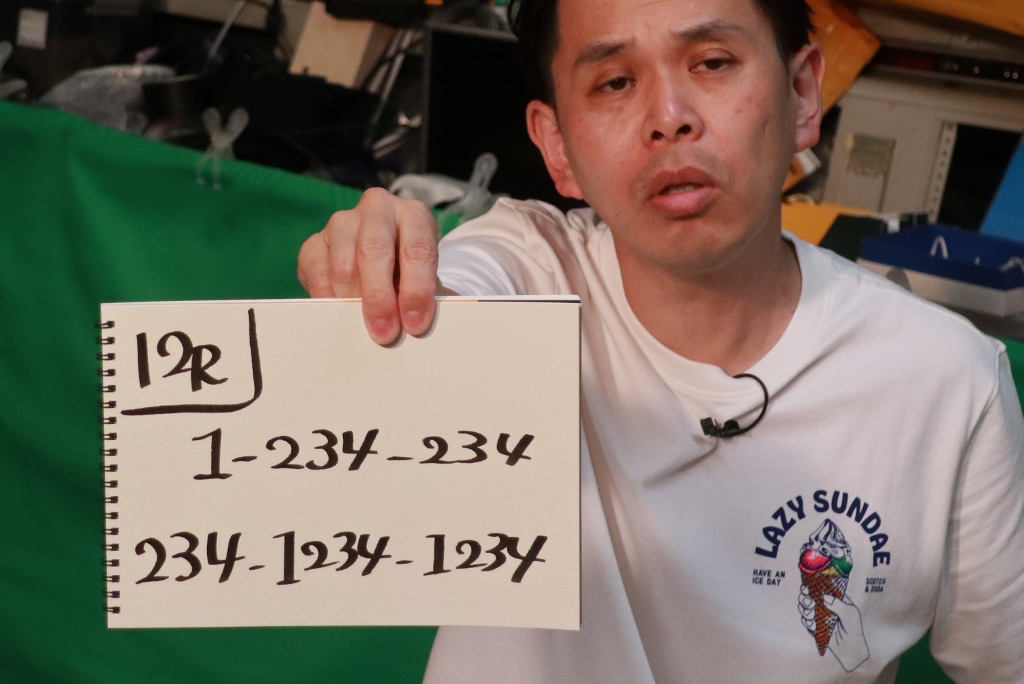 12R
1-234-234
234-1234-1234
LAZY SUNDAE
HAVE AN
ICE DAY
SCOTCH
& SODA